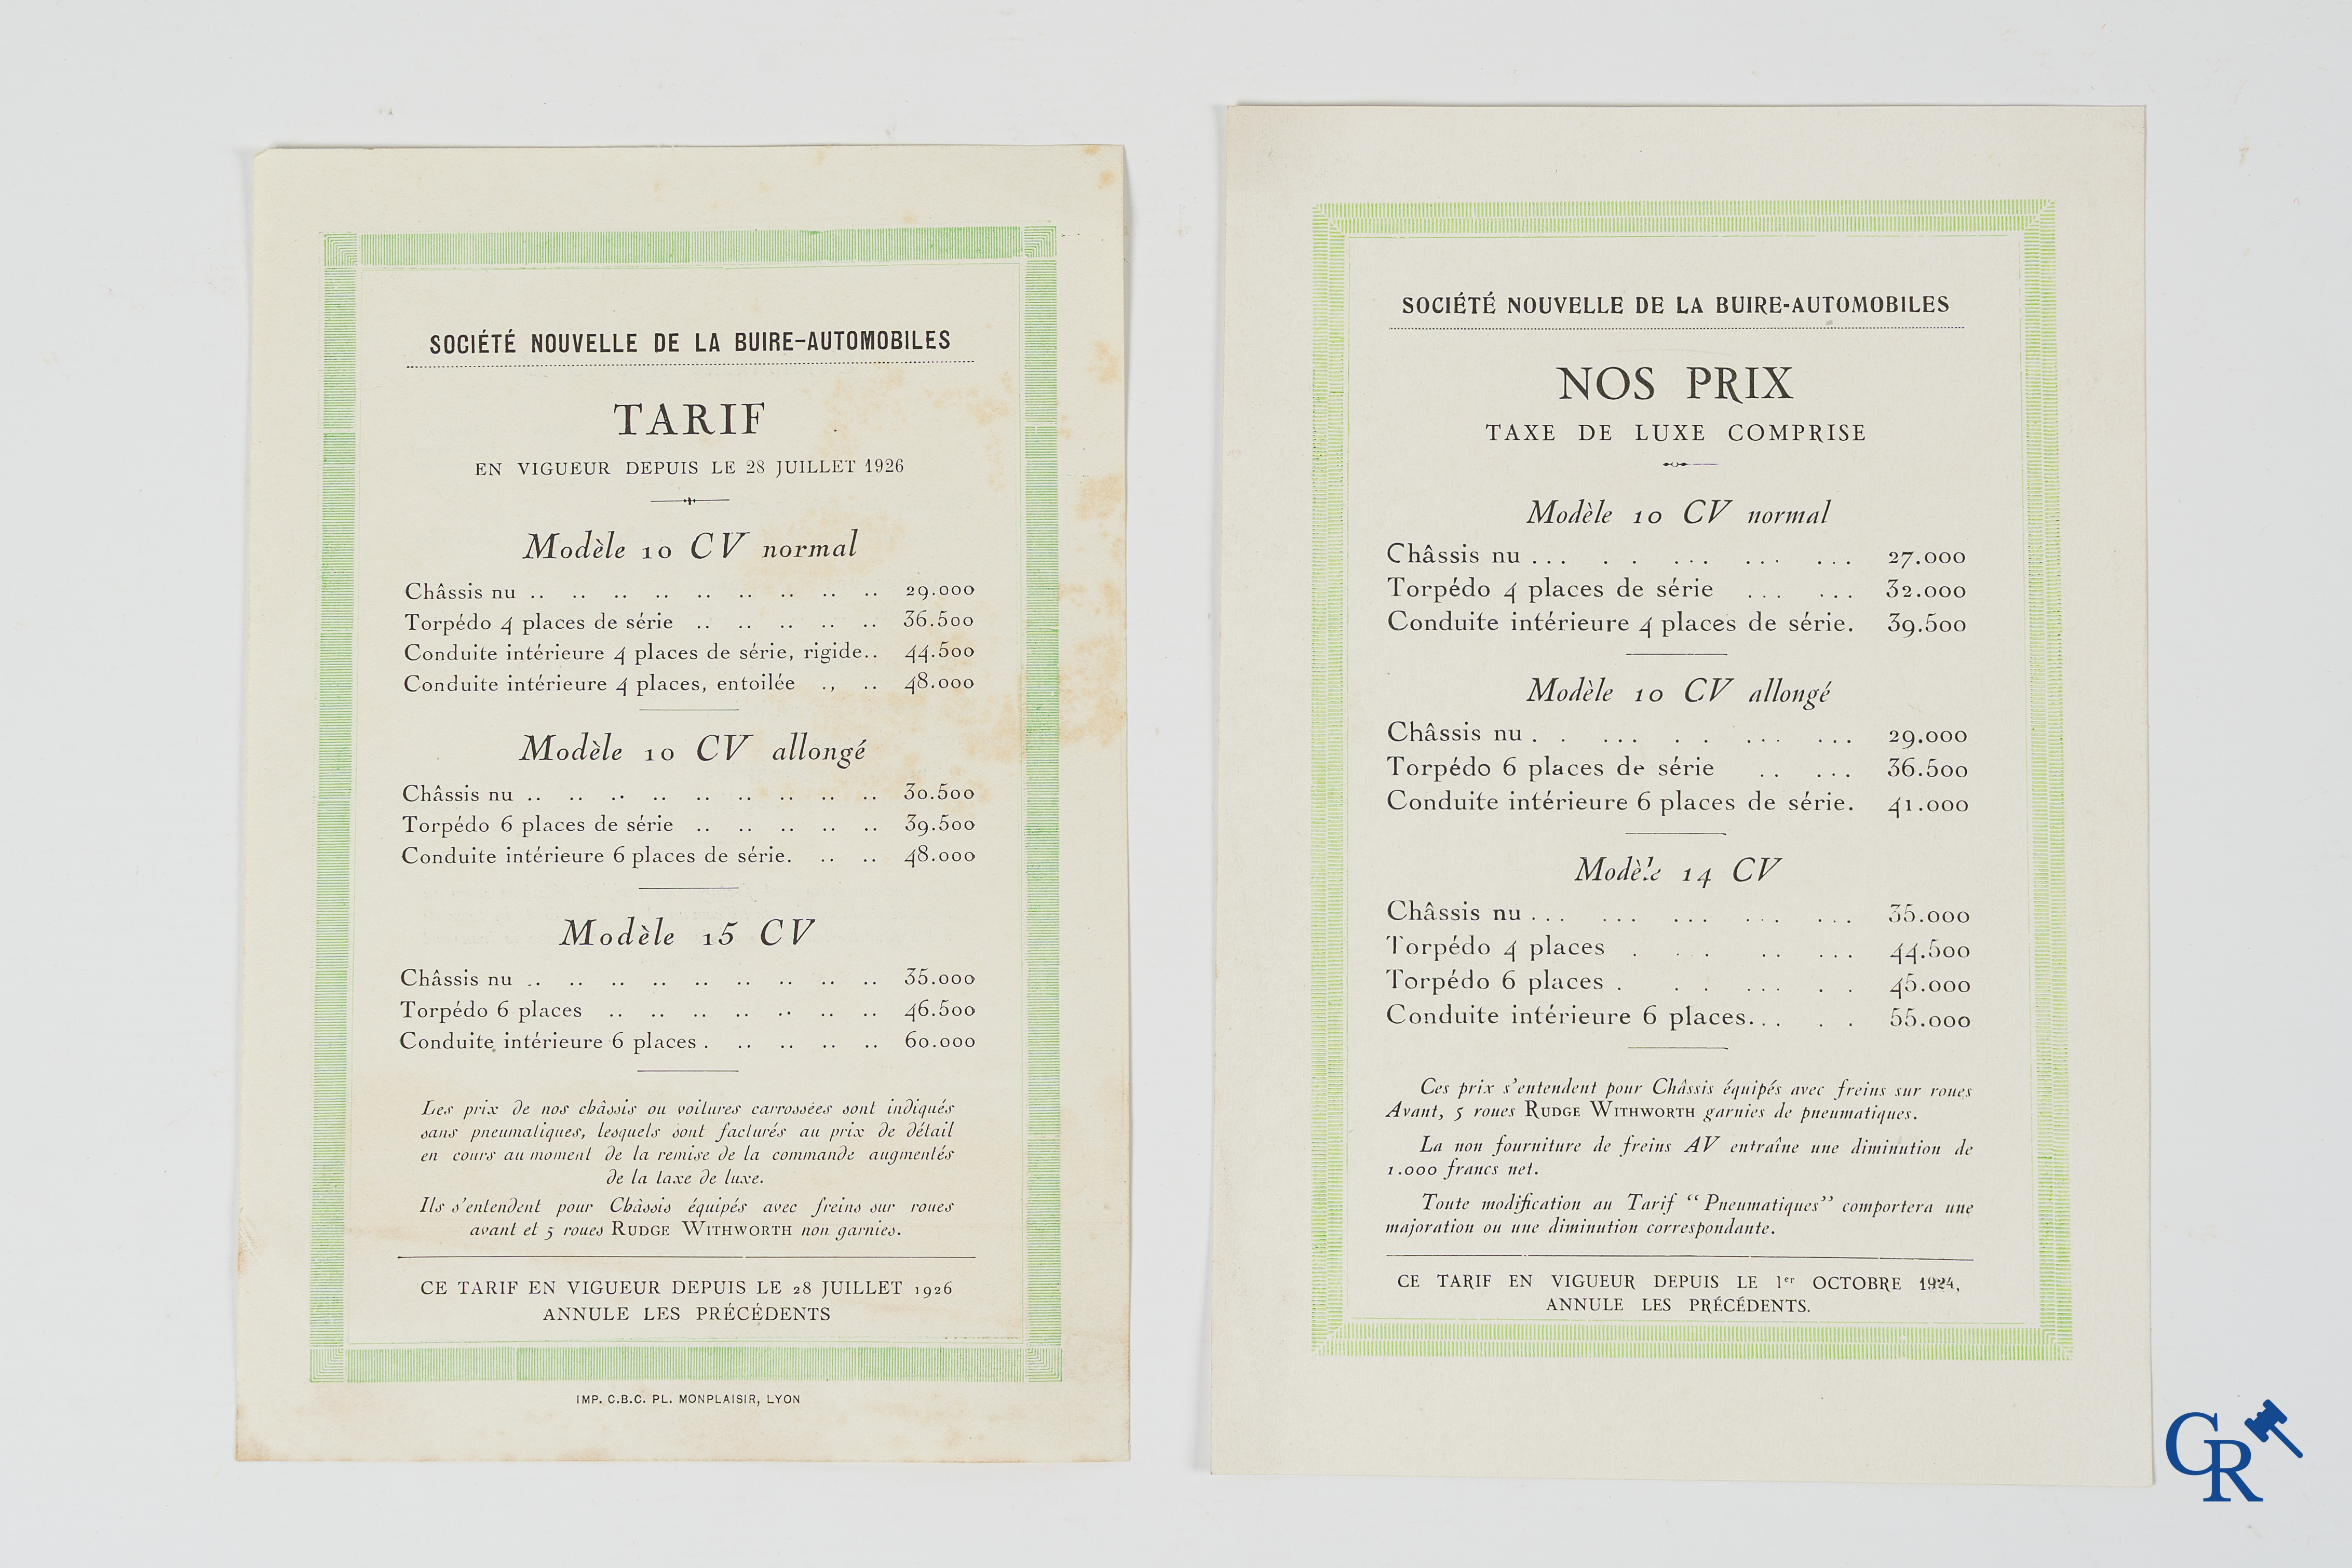 SOCIÉTÉ NOUVELLE DE LA BUIRE-AUTOMOBILES
TARIF
EN VIGUEUR DEPUIS LE 28 JUILLET 1926
Modèle 10 CV normal
Châssis nu .. .. .. .. .. .. .. .. .. 29.000
Torpédo 4 places de série .. .. .. .. .. 36.500
Conduite intérieure 4 places de série, rigide.. 44.500
Conduite intérieure 4 places, entoilée ., .. 48.000
Modèle 10 CV allongé
Châssis nu .. .. .. .. .. .. .. .. .. 30.500
Torpédo 6 places de série .. .. .. .. .. 39.500
Conduite intérieure 6 places de série. .. .. 48.000
Modèle 15 CV
Châssis nu .. .. .. .. .. .. .. .. .. 35.000
Torpédo 6 places .. .. .. .. .. .. .. 46.500
Conduite intérieure 6 places . .. .. .. .. 60.000
Les prix de nos châssis ou voitures carrossées sont indiqués
sans pneumatiques, lesquels sont facturés au prix de détail
en cours au moment de la remise de la commande augmentés
de la taxe de luxe.
Ils s'entendent pour Châssis équipés avec freins sur roues
avant et 5 roues RUDGE WITHWORTH non garnies.
CE TARIF EN VIGUEUR DEPUIS LE 28 JUILLET 1926
ANNULE LES PRÉCÉDENTS
IMP. C.B.C. PL. MONPLAISIR, LYON
SOCIÉTÉ NOUVELLE DE LA BUIRE-AUTOMOBILES
NOS PRIX
TAXE DE LUXE COMPRISE
Modèle 10 CV normal
Châssis nu ... . . ... ... ... 27.000
Torpédo 4 places de série ... ... 32.000
Conduite intérieure 4 places de série. 39.500
Modèle 10 CV allongé
Châssis nu . . ... . . ... ... 29.000
Torpédo 6 places de série .. ... 36.500
Conduite intérieure 6 places de série. 41.000
Modèle 14 CV
Châssis nu ... ... ... ... ... 35.000
Torpédo 4 places . . . .. ... 44.500
Torpédo 6 places . . . ... . . 45.000
Conduite intérieure 6 places... . . 55.000
Ces prix s'entendent pour Châssis équipés avec freins sur roues
Avant, 5 roues RUDGE WITHWORTH garnies de pneumatiques.
La non fourniture de freins AV entraîne une diminution de
1.000 francs net.
Toute modification au Tarif “Pneumatiques” comportera une
majoration ou une diminution correspondante.
CE TARIF EN VIGUEUR DEPUIS LE 1er OCTOBRE 1924,
ANNULE LES PRÉCÉDENTS.
CR